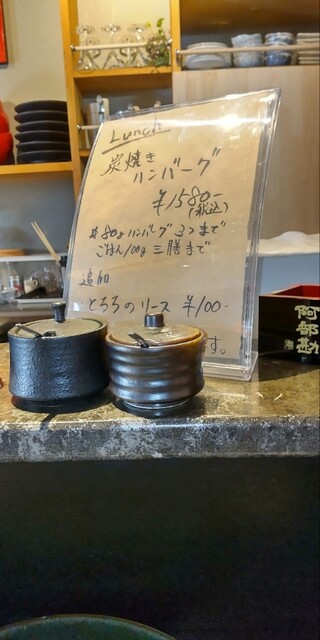 Lunch
炭焼き
ハンバーグ
¥1580-
(税込)
80gハンバーグ 3つまで
ごはん100g 三膳まで
追加
とろろのソース ¥100-
す。
阿部勘